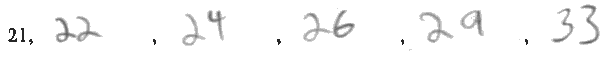 21, 22 , 24 , 26 , 29 , 33